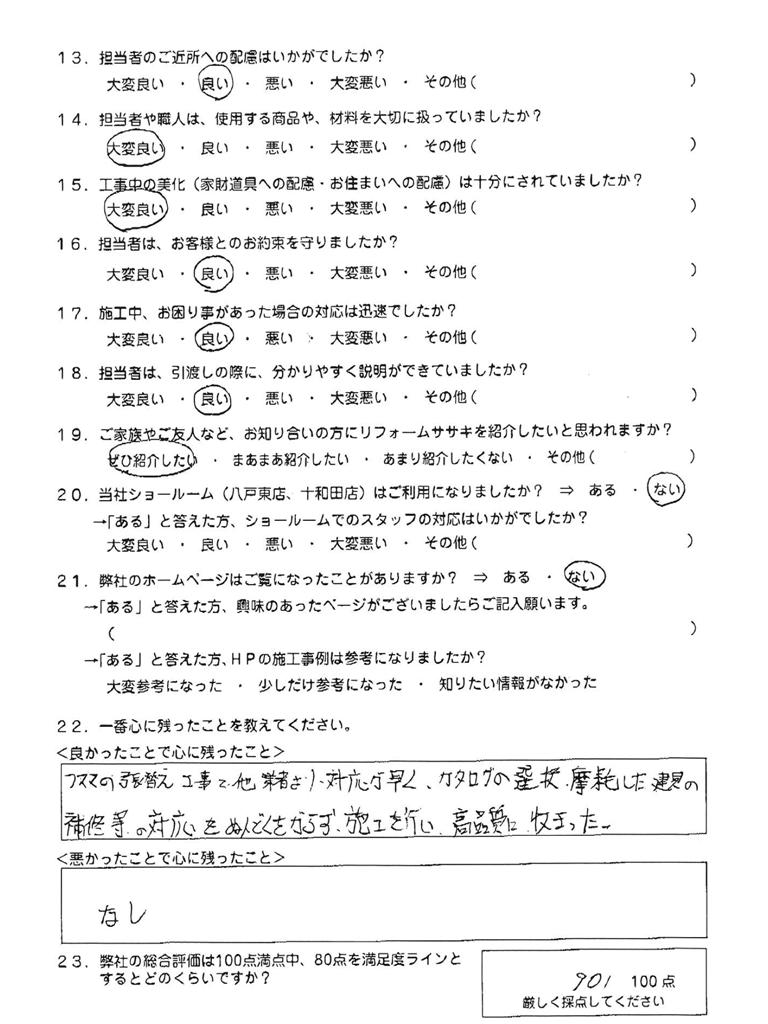 13. 担当者のご近所への配慮はいかがでしたか?
大変良い ・ 良い ・ 悪い ・ 大変悪い ・ その他( )
14. 担当者や職人は、使用する商品や、材料を大切に扱っていましたか?
大変良い ・ 良い ・ 悪い ・ 大変悪い ・ その他( )
15. 工事中の美化(家財道具への配慮・お住まいへの配慮)は十分にされていましたか?
大変良い ・ 良い ・ 悪い ・ 大変悪い ・ その他( )
16. 担当者は、お客様とのお約束を守りましたか?
大変良い ・ 良い ・ 悪い ・ 大変悪い ・ その他( )
17. 施工中、お困り事があった場合の対応は迅速でしたか?
大変良い ・ 良い ・ 悪い ・ 大変悪い ・ その他( )
18. 担当者は、引渡しの際に、分かりやすく説明ができていましたか?
大変良い ・ 良い ・ 悪い ・ 大変悪い ・ その他( )
19. ご家族やご友人など、お知り合いの方にリフォームササキを紹介したいと思われますか?
ぜひ紹介したい ・ まあまあ紹介したい ・ あまり紹介したくない ・ その他( )
20. 当社ショールーム(八戸東店、十和田店)はご利用になりましたか? ⇒ ある ・ ない
→「ある」と答えた方、ショールームでのスタッフの対応はいかがでしたか?
大変良い ・ 良い ・ 悪い ・ 大変悪い ・ その他( )
21. 弊社のホームページはご覧になったことがありますか? ⇒ ある ・ ない
→「ある」と答えた方、興味のあったページがございましたらご記入願います。
( )
→「ある」と答えた方、HPの施工事例は参考になりましたか?
大変参考になった ・ 少しだけ参考になった ・ 知りたい情報がなかった
22. 一番心に残ったことを教えてください。
<良かったことで心に残ったこと>
フスマの張替え工事で他業者より対応が早く、カタログの選択、摩耗した建具の
補修等の対応をめんどくさがらず、施工を行い、高品質に収まった。
<悪かったことで心に残ったこと>
なし
23. 弊社の総合評価は100点満点中、80点を満足度ラインと
するとどのくらいですか?
90/ 100点
厳しく採点してください